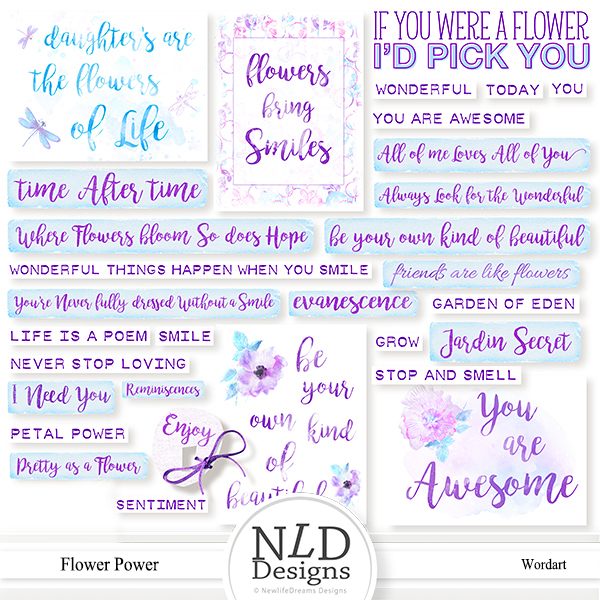 daughter's are
the flowers
of Life
flowers
bring
Smiles
IF YOU WERE A FLOWER
I'D PICK YOU
WONDERFUL
TODAY
YOU
YOU ARE AWESOME
All of me Loves All of You
time After time
Always Look for the Wonderful
Where Flowers bloom So does Hope
be your own kind of beautiful
WONDERFUL THINGS HAPPEN WHEN YOU SMILE
friends are like flowers
You're Never fully dressed Without a Smile
evanescence
GARDEN OF EDEN
LIFE IS A POEM
SMILE
GROW
Jardin Secret
NEVER STOP LOVING
STOP AND SMELL
I Need You
Reminiscences
be
your
own kind
of
beautiful
PETAL POWER
Enjoy
Pretty as a Flower
SENTIMENT
You
are
Awesome
Flower Power
NLD
Designs
© NewlifeDreams Designs
Wordart